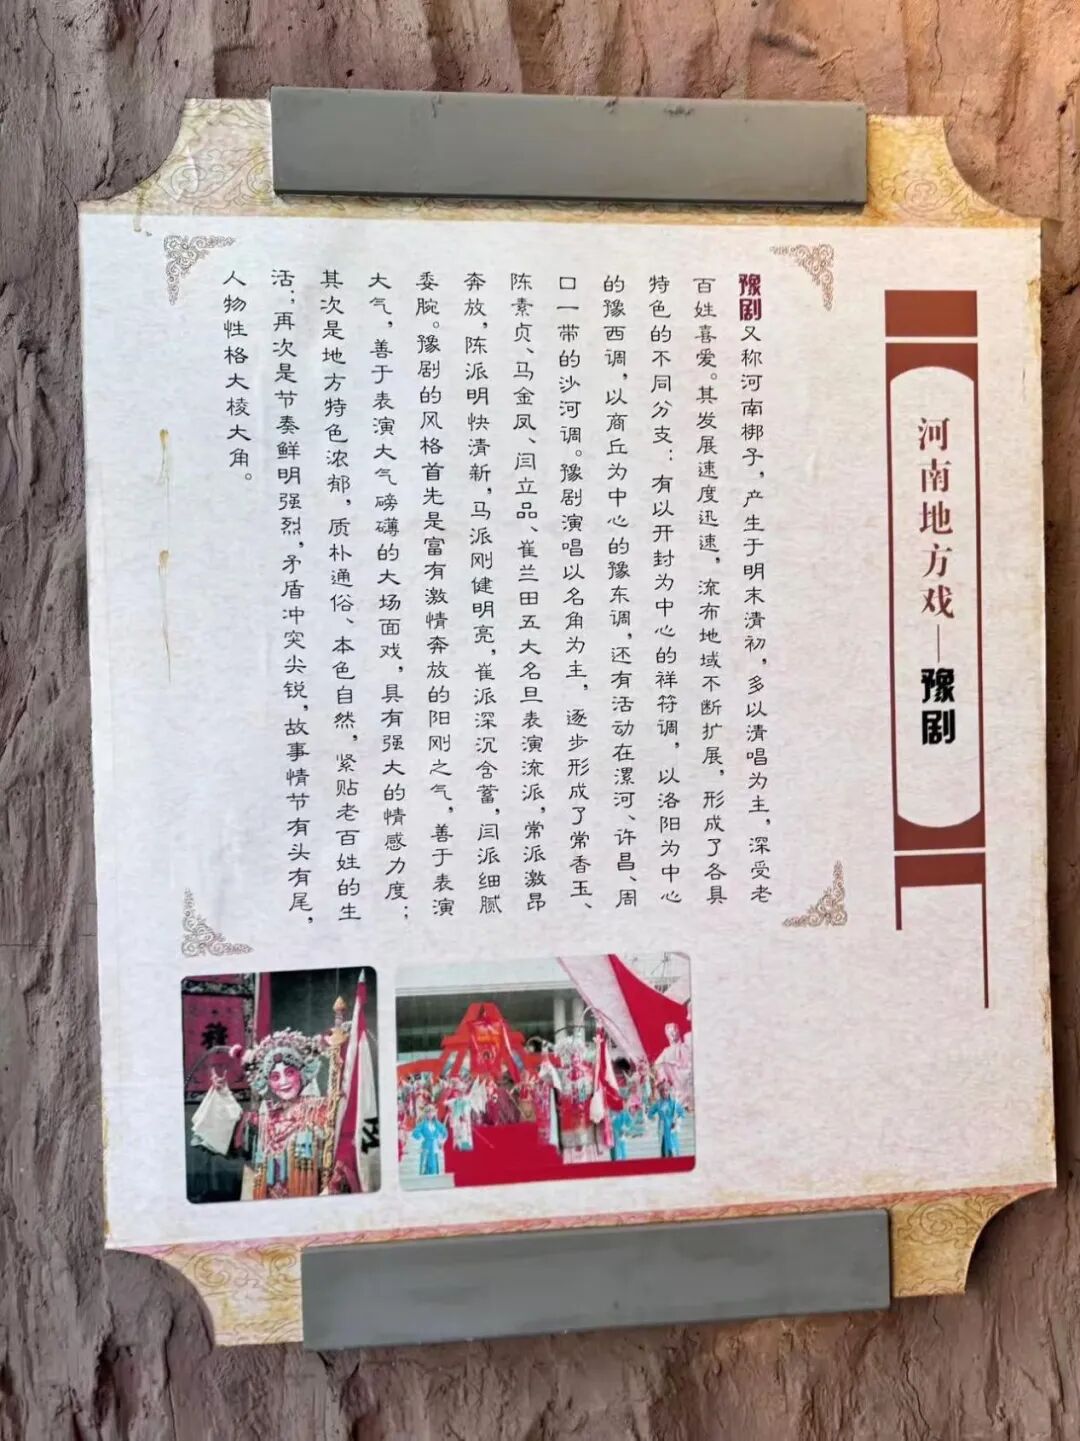 河南地方戏—豫剧
豫剧又称河南梆子，产生于明末清初，多以清唱为主，深受老
百姓喜爱。其发展速度迅速，流布地域不断扩展，形成了各具
特色的不同分支：有以开封为中心的祥符调，以洛阳为中心
的豫西调，以商丘为中心的豫东调，还有活动在漯河、许昌、周
口一带的沙河调。豫剧演唱以名角为主，逐步形成了常香玉、
陈素贞、马金凤、闫立品、崔兰田五大名旦表演流派，常派激昂
奔放，陈派明快清新，马派刚健明亮，崔派深沉含蓄，闫派细腻
委腕。豫剧的风格首先是富有激情奔放的阳刚之气，善于表演
大气，善于表演大气磅礴的大场面戏，具有强大的情感力度；
其次是地方特色浓郁，质朴通俗、本色自然，紧贴老百姓的生
活；再次是节奏鲜明强烈，矛盾冲突尖锐，故事情节有头有尾，
人物性格大棱大角。